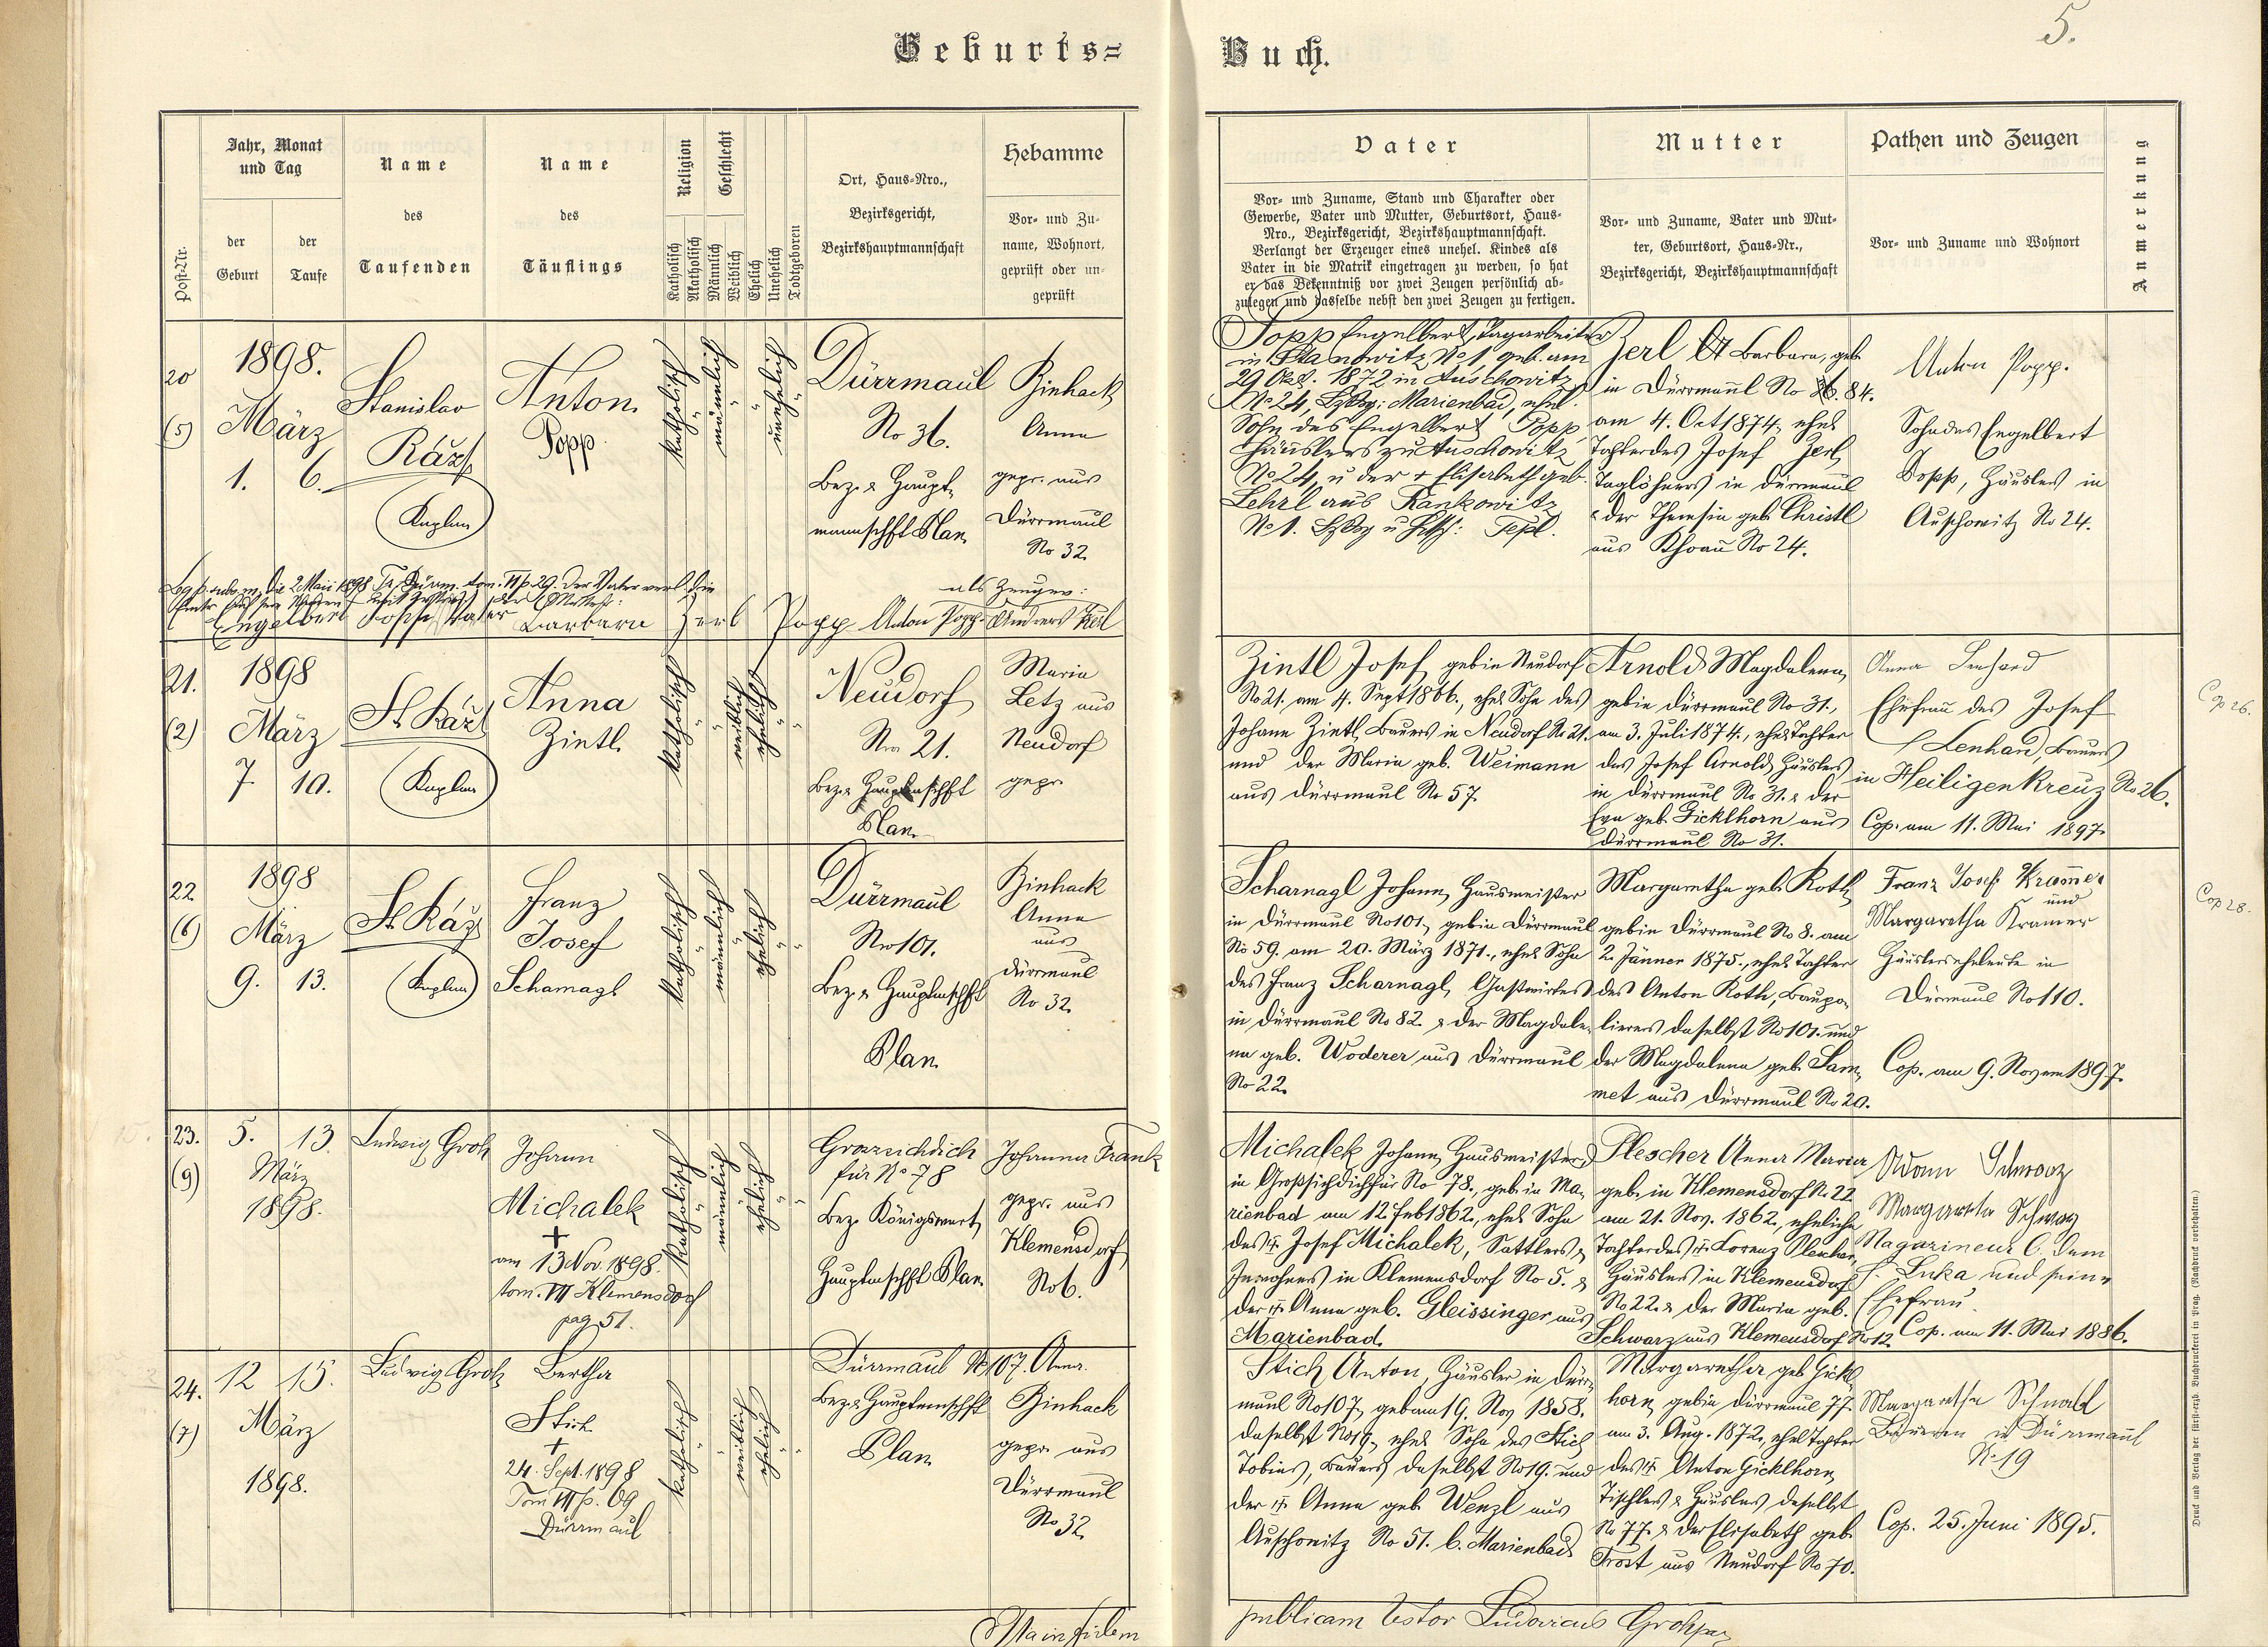 Geburts=
Buch.
5.
Post-Nr.
Jahr, Monat
und Tag
der
Geburt
der
Taufe
Name
des
Taufenden
Name
des
Täuflings
Religion
Katholisch
Akatholisch
Geschlecht
Männlich
Weiblich
Ehelich
Unehelich
Todtgeboren
Ort, Haus-Nro.,
Bezirksgericht,
Bezirkshauptmannschaft
Hebamme
Vor- und Zu-
name, Wohnort,
geprüft oder un-
geprüft
Vater
Vor- und Zuname, Stand und Charakter oder
Gewerbe, Vater und Mutter, Geburtsort, Haus-
Nro., Bezirksgericht, Bezirkshauptmannschaft.
Verlangt der Erzeuger eines unehel. Kindes als
Vater in die Matrik eingetragen zu werden, so hat
er das Bekenntniß vor zwei Zeugen persönlich ab-
zulegen und dasselbe nebst den zwei Zeugen zu fertigen.
Mutter
Vor- und Zuname, Vater und Mut-
ter, Geburtsort, Haus-Nr.,
Bezirksgericht, Bezirkshauptmannschaft
Pathen und Zeugen
Vor- und Zuname und Wohnort
Anmerkung
20
(5)
1898.
März
1. 6.
Stanislav
Ráž
Kaplan
Anton
Popp
katholisch
männlich
unehelich
Dürrmaul
No 36.
Bez. & Haupt-
mannschft Plan
Binhack
Anna
gepr. aus
Dürrmaul
No 32.
Popp Engelbert, Tagarbeiter
in Stanowitz No 1 geb. am
29 Okt. 1872 in Auschowitz
No 24, Marienbad, ehel.
Sohn des Engelbert Popp,
Häuslers zu Auschowitz
No 24, u der + Elisabeth geb.
Lehrl aus Rankowitz
No 1. Tepl.
Zerl Barbara, geb.
in Dürrmaul No 84.
am 4. Oct 1874, ehel.
Tochter des Josef Zerl,
Taglöhners in Dürrmaul
& der Theresia geb. Christl
aus Khoau No 24.
Anton Popp.
Sohn des Engelbert
Popp, Häusler in
Auschowitz No 24.
als Zeugen:
Engelbert Popp, Vater Barbara Zerl Popp Anton Popp Andreas Zerl
21.
(2)
1898
März
7. 10.
St. Ráž
Kaplan
Anna
Zintl.
katholisch
weiblich
ehelich
Neudorf
Nro 21.
Bez. & Hauptmschft
Plan.
Maria
Letz aus
Neudorf
gepr.
Zintl Josef, geb in Neudorf
No 21, am 4. Sept 1866., ehel. Sohn des
Johann Zintl, Bauers in Neudorf No 21.
und der Maria geb. Weimann
aus Dürrmaul No 57.
Arnold Magdalena,
geb in Dürrmaul No 31.,
am 3. Juli 1874., ehel. Tochter
des Josef Arnold, Häuslers
in Dürrmaul No 31. & der
Eva geb. Gicklhorn aus
Dürrmaul No 31.
Anna Lenhard
Ehefrau des Josef
Lenhard, Bauers
in Heiligenkreuz No 26.
Cop. am 11. Mai 1897.
Cop 26.
22
(6)
1898
März
9. 13.
St. Ráž
Kaplan
Franz
Josef
Scharnagl
katholisch
männlich
ehelich
Dürrmaul
Nro 101.
Bez. & Hauptmschft
Plan
Binhack
Anna
aus
Dürrmaul
No 32.
Scharnagl Johann, Hausmeister
in Dürrmaul No 101, geb in Dürrmaul
No 59. am 20. März 1871., ehel. Sohn
des Franz Scharnagl, Gastwirtes
in Dürrmaul No 82. & der Magdale-
na geb. Woderer aus Dürrmaul
No 22.
Margaretha geb. Roth,
geb in Dürrmaul No 8. am
2. Jänner 1875., ehel. Tochter
des Anton Roth, Baupo-
lierers daselbst No 101. und
der Magdalena geb. Sam-
met aus Dürrmaul No 20.
Franz Josef Kramer
und
Margaretha Kramer
Häuslerseheleute in
Dürrmaul No 110.
Cop. am 9. Novem 1897.
Cop 28.
23.
(9)
5. 13.
März
1898.
Ludwig Groh
Johann
Michalek
+
am 13 Nov. 1898.
tom. VII Klemensdorf
pag 51.
katholisch
männlich
ehelich
Grossichdich
für No 78
Bez. Königswart,
Hauptmschft Plan.
Johanna Frank
gepr. aus
Klemensdorf
No 6.
Michalek Johann, Hausmeister
in Großsichdichfür No 78., geb. in Ma-
rienbad am 12. Feb 1862., ehel. Sohn
des Josef Michalek, Sattlers &
Inwohners in Klemensdorf No 5. &
der Anna geb. Gleissinger aus
Marienbad.
Plescher Anna Maria
geb. in Klemensdorf No 22
am 21. Nov. 1862., eheliche
Tochter des Lorenz Plescher,
Häuslers in Klemensdorf
No 22. & der Maria geb.
Schwarz aus Klemensdorf No 12.
Adam Schwarz
Margareta Schwarz
Magazineur b. dem
Luka und seine
Ehefrau.
Cop. am 11. Mai 1886.
24.
(7)
12 15.
März
1898.
Ludwig Groh
Bertha
Stich
+
24. Sept. 1898
Tom VII p. 69
Dürrmaul
katholisch
weiblich
ehelich
Dürrmaul No 107.
Bez. & Hauptmschft
Plan
Anna
Binhack
gepr. aus
Dürrmaul
No 32.
Stich Anton, Häusler in Dürr-
maul No 107, geb am 19. Nov 1858.
daselbst No 19, ehel. Sohn des Stich
Tobias, Bauers daselbst No 19. und
der Anna geb. Wenzl aus
Auschowitz No 51. b. Marienbad
Margaretha geb Gickl-
horn, geb in Dürrmaul 77.
am 3. Aug. 1872., ehel Tochter
des Anton Gicklhorn,
Tischlers & Häuslers daselbst
No 77. & der Elisabeth geb.
Trost aus Neudorf No 70.
Margaretha Schnabl
Bäuerin in Dürrmaul
No 19
Cop. 25. Juni 1895.
publicam testor Ludovicus Groh
Druck und Verlag der fürst-erzb. Buchdruckerei in Prag. (Nachdruck vorbehalten.)